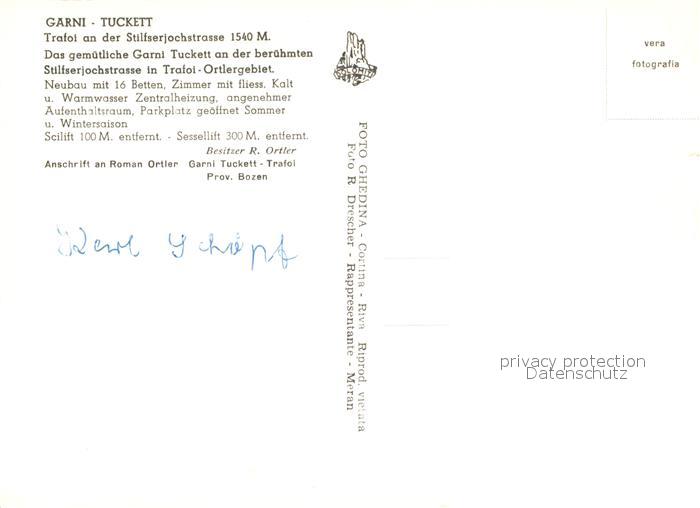 GARNI - TUCKETT
Trafoi an der Stilfserjochstrasse 1540 M.
Das gemütliche Garni Tuckett an der berühmten
Stilfserjochstrasse in Trafoi-Ortlergebiet.
Neubau mit 16 Betten, Zimmer mit fliess. Kalt
u. Warmwasser Zentralheizung, angenehmer
Aufenthaltsraum, Parkplatz geöffnet Sommer
u. Wintersaison
Scilift 100 M. entfernt. - Sessellift 300 M. entfernt.
Besitzer R. Ortler
Anschrift an Roman Ortler Garni Tuckett - Trafoi
Prov. Bozen
Karl Schöpf
FOTO GHEDINA - Cortina - Riva Riprod. vietata
Foto R. Drescher - Rappresentante - Meran
vera
fotografia
privacy protection
Datenschutz